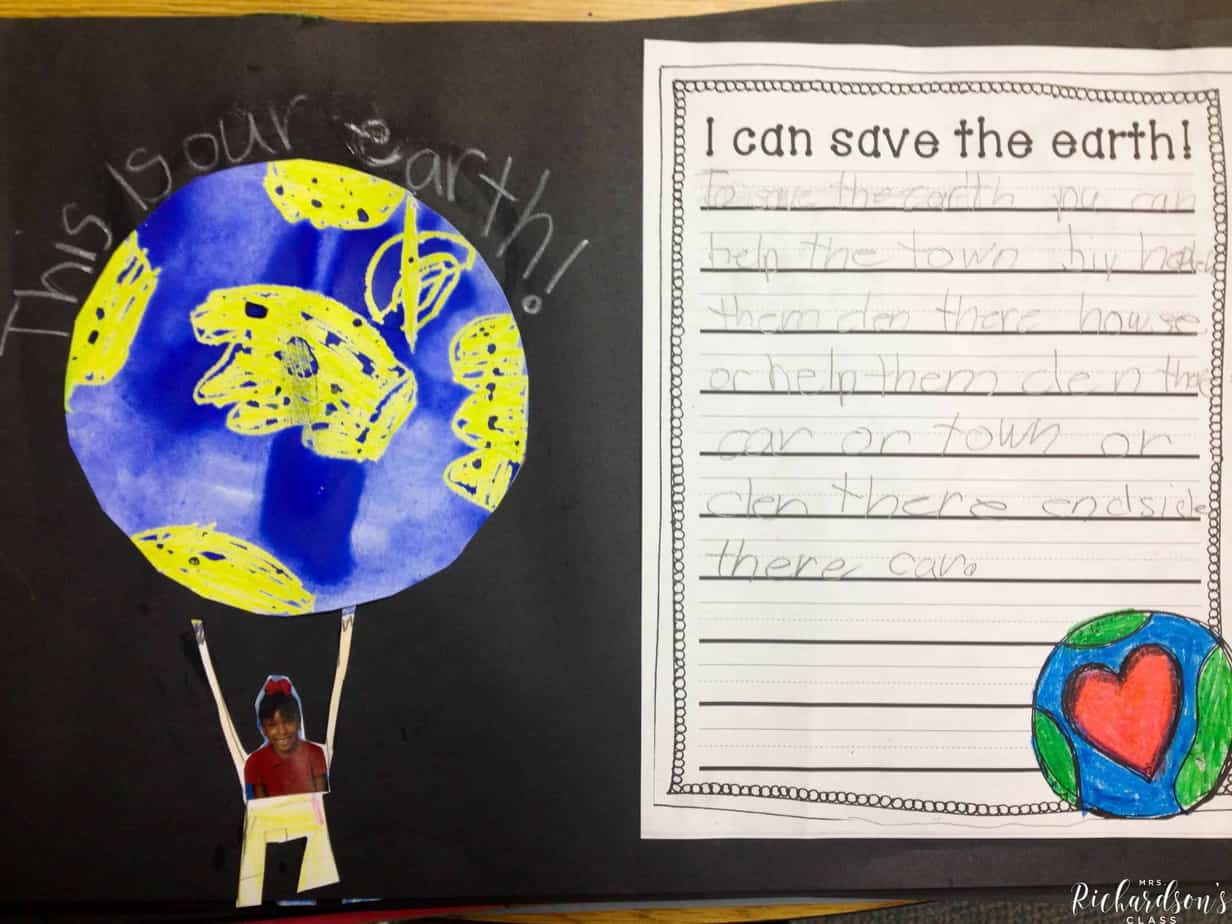 This Is our earth!
I can save the earth!
To save the earth you can
help the town biy help
them clen there howse
or help them clen there
car or town or
clen there endside
there car.
MRS.
Richardson's
CLASS